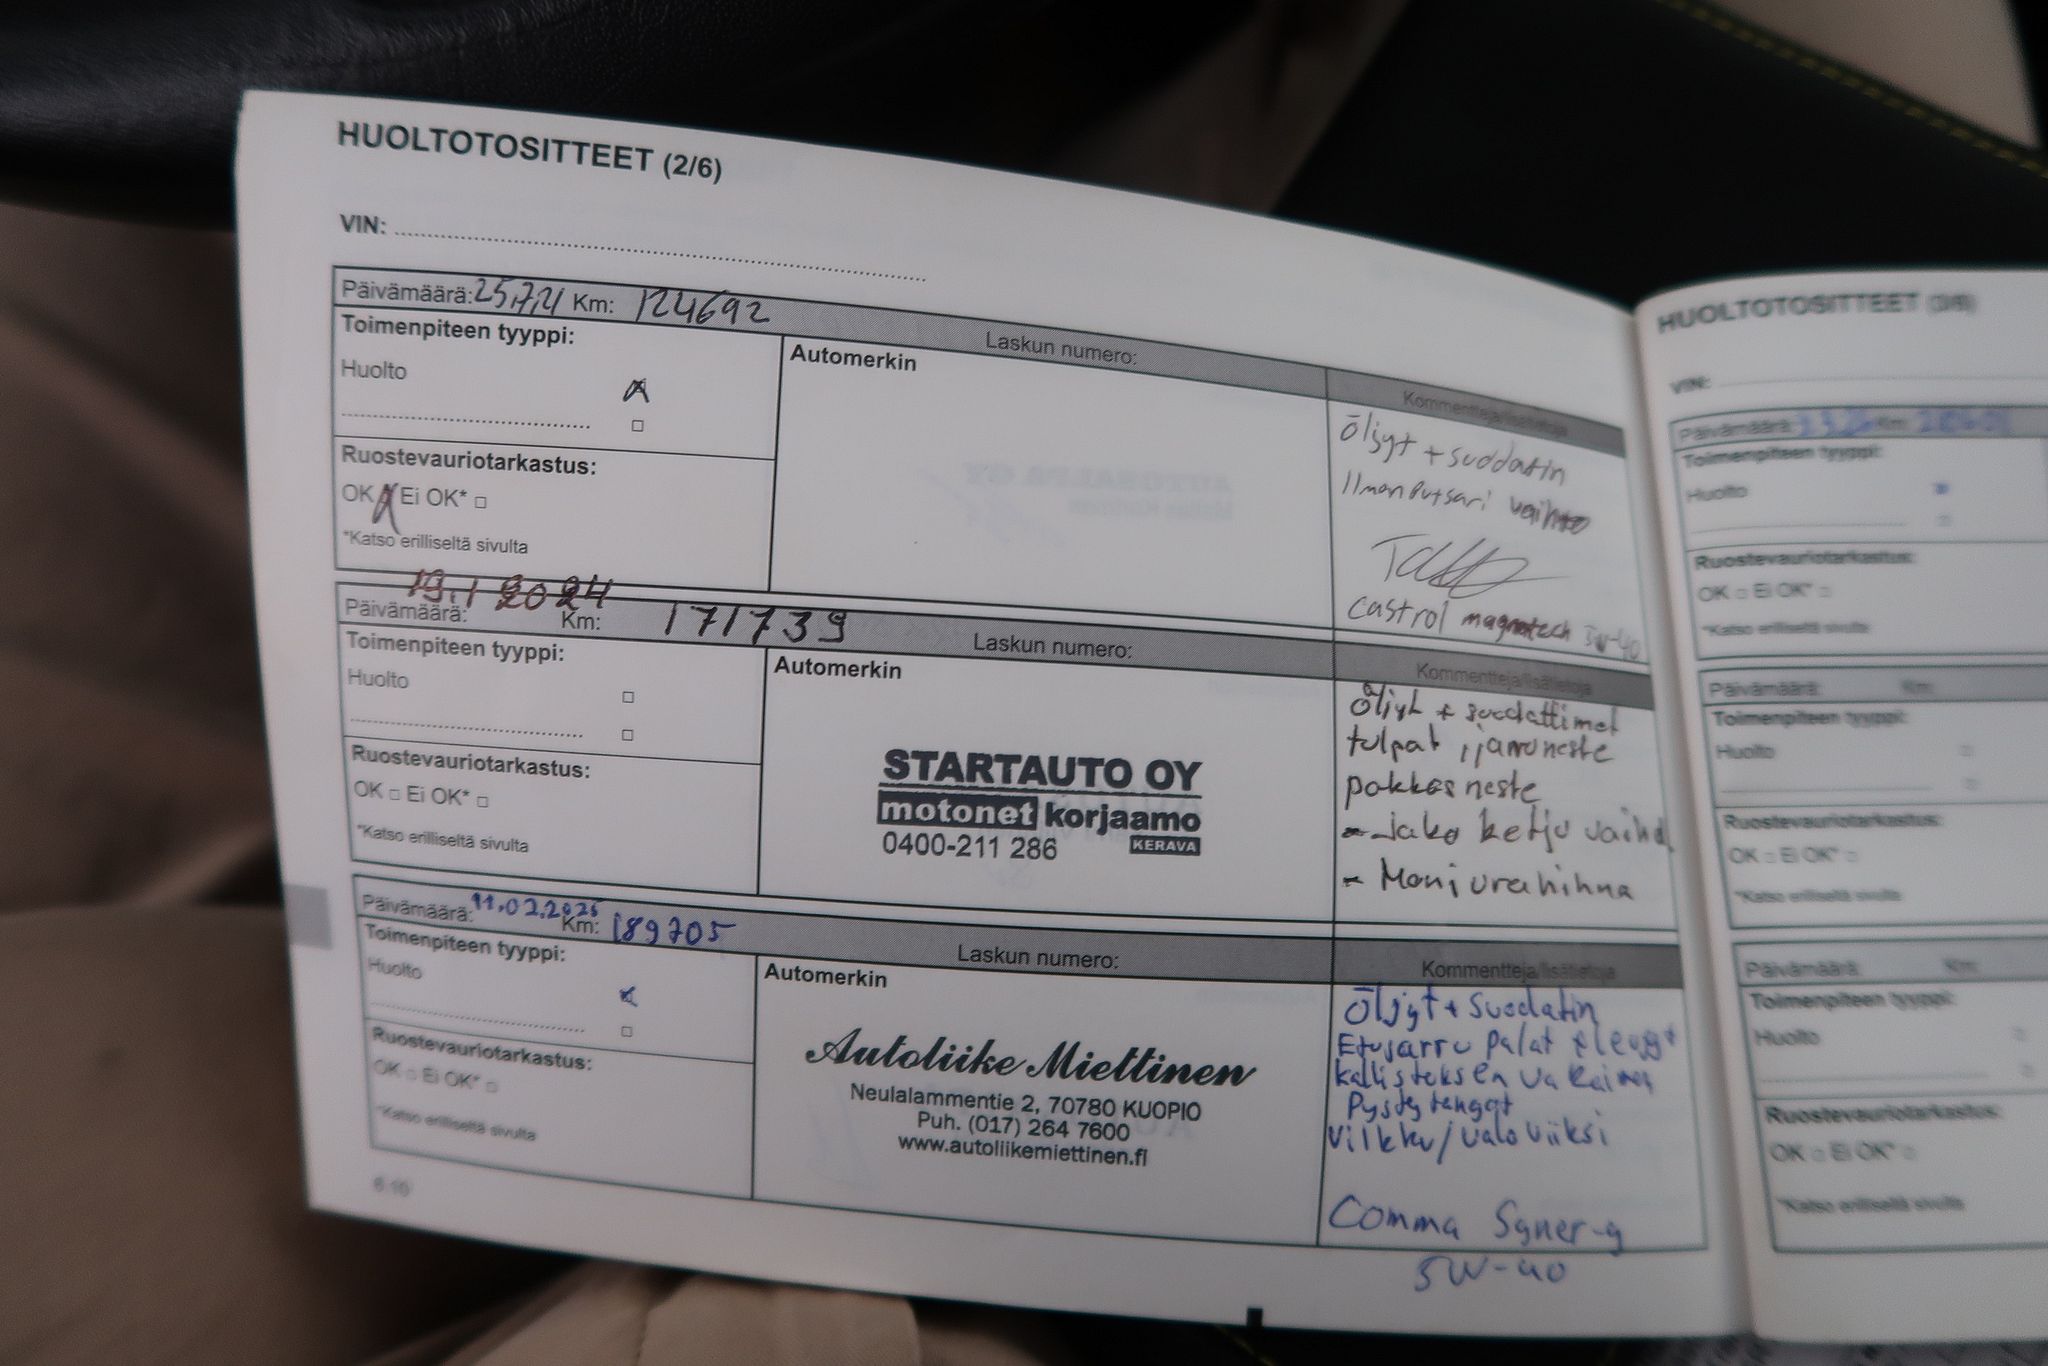 HUOLTOTOSITTEET (2/6)
VIN:
Päivämäärä: 25,7,21 Km: 124692
Laskun numero:
Kommentteja/lisätietoja
Toimenpiteen tyyppi:
Huolto
Ruostevauriotarkastus:
OK Ei OK*
*Katso erilliseltä sivulta
Automerkin
Öljyt + suodatin
Ilmanputsari vaihto
Castrol magnatech 5W-40
Päivämäärä: 19.1 2024 Km: 171739
Laskun numero:
Kommentteja/lisätietoja
Toimenpiteen tyyppi:
Huolto
Ruostevauriotarkastus:
OK Ei OK*
*Katso erilliseltä sivulta
Automerkin
STARTAUTO OY
motonet korjaamo
0400-211 286 KERAVA
Öljyt + suodattimet
tulpat, jarruneste
pakkasneste
- Jako ketju vaihd
- Moniurahihna
Päivämäärä: 11.02.2025 Km: 189705
Laskun numero:
Kommentteja/lisätietoja
Toimenpiteen tyyppi:
Huolto
Ruostevauriotarkastus:
OK Ei OK*
*Katso erilliseltä sivulta
Automerkin
Autoliike Miettinen
Neulalammentie 2, 70780 KUOPIO
Puh. (017) 264 7600
www.autoliikemiettinen.fi
Öljyt + Suodatin
Etujarru palat
kallisteksen
Pystytangot
Vilkku/valoviiksi
Comma Syner-g
5W-40
6.10
HUOLTOTOSITTEET (3/6)
VIN:
Päivämäärä: Km:
Toimenpiteen tyyppi:
Huolto
Ruostevauriotarkastus:
OK Ei OK*
*Katso erilliseltä sivulta
Päivämäärä: Km:
Toimenpiteen tyyppi:
Huolto
Ruostevauriotarkastus:
OK Ei OK*
*Katso erilliseltä sivulta
Päivämäärä: Km:
Toimenpiteen tyyppi:
Huolto
Ruostevauriotarkastus:
OK Ei OK*
*Katso erilliseltä sivulta